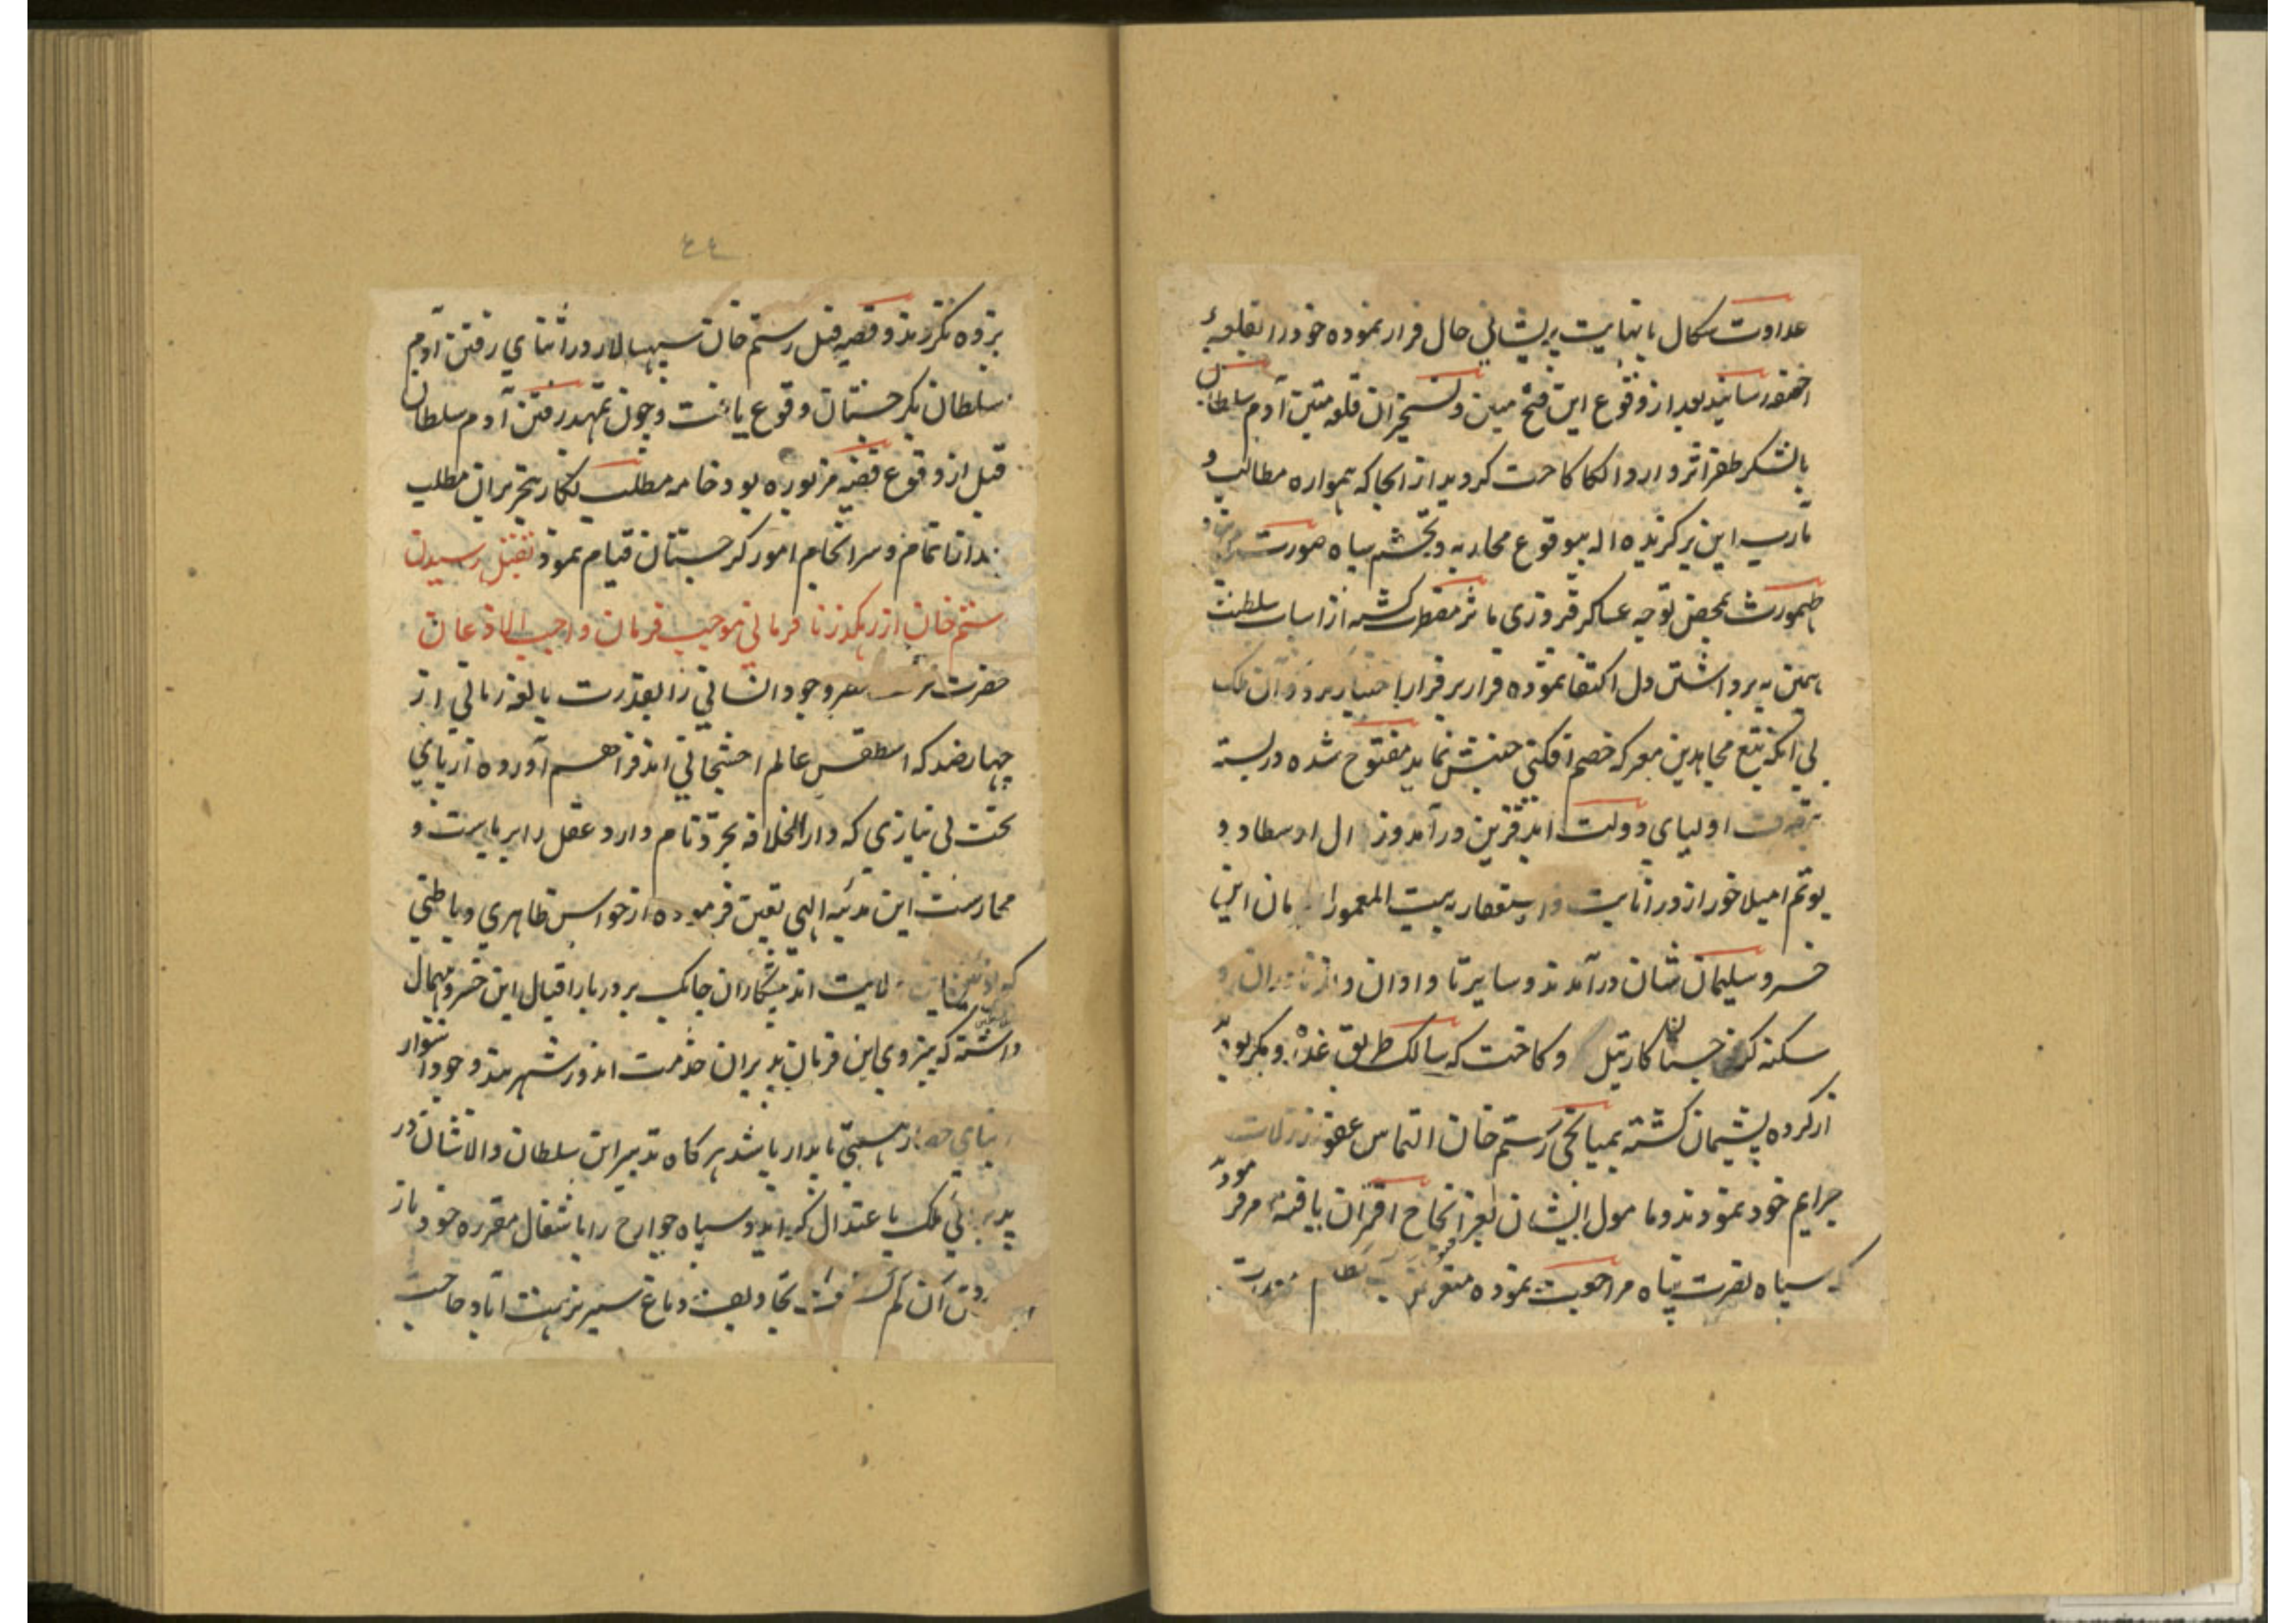 عداوت سگال با نهایت پریشانی حال فرار نموده خود را بقلعهٔ
رسانید بعد از وقوع این فتح مبین و تسخیر ان قلعه متین آدم سلطان
بالشکر ظفر اثر وارد الکا کاخت کردید از انجا که همواره مطالب و
مارب این برکزیده اله بیوقوع محاربه و تجشم سپاه صورت
طهمورث بمحض توجه عساکر فیروزی ماثر مضطرب کشته از اسباب سلطنت
بهمین به برداشتن دل اکتفا نموده فرار بر قرار اختیار برد و آن ملک
بی انکه تیغ مجاهدین معرکه خصم افکنی جنبش نماید مفتوح شده دربسته
بتصرف اولیای دولت ابد قرین درآمد و زال اوسطاو و
یوتم امیلاخور از در انابت و استغفار ببیت المعمور این
خسرو سلیمان شان درآمدند و سایر تاوادان و ازناوران و
سکنه کرجستان کارتیل و کاخت که سالک طریق غدر و مکر بودند
از کرده پشیمان کشته بمیانجی رستم خان التماس عفو زلات
جرایم خود نمودند و مامول ایشان بعز انجاح اقتران یافته
سپاه نصرت پناه مراجعت نموده
٤٤
نکردند و قضیه قتل رستم خان سپهسالار در اثنای رفتن آدم
سلطان بکرجستان وقوع یافت و چون تمهید رفتن آدم سلطان
قبل از وقوع قضیه مزبوره بود خامه مطلب نکار بتحریر ان مطلب
اتمام و سرانجام امور کرجستان قیام نمود بقتل رسیدن
رستم خان از رهکذر نافرمانی بموجب فرمان واجب الاذعان
حضرت وجود انسانی را بقدرت بالغه ربانی از
چهار ضد که اسطقس عالم اختیجانی اند فراهم آورده از پای
تخت بی نیازی که دار الخلافه تجرد نام دارد عقل را بریاست و
ممارست این مدینه الهی تعین فرموده از حواس ظاهری و باطنی
که ولایت اند پیشکاران چابک بر دربار اقبال این خسرو بیهمال
داشته که بنیروی این فرمان پذیران خدمت اندوز شهربند وجود استوار
بنای حصار هستی پایدار باشد هر کاه تدبیر این سلطان والاشان در
ملک باعتدال کراید و سپاه جوارح را باشغال مقرره خود باز
آن تجاویف دماغ سیر نزهت آباد صاحب